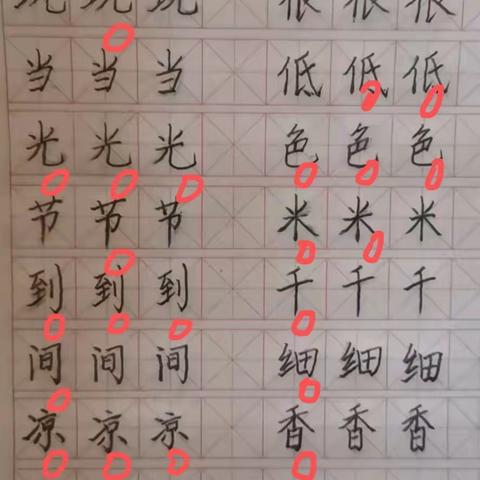 当 当 当 低 低 低
光 光 光 色 色 色
节 节 节 米 米 米
到 到 到 千 千 千
间 间 间 细 细 细
凉 凉 凉 香 香 香